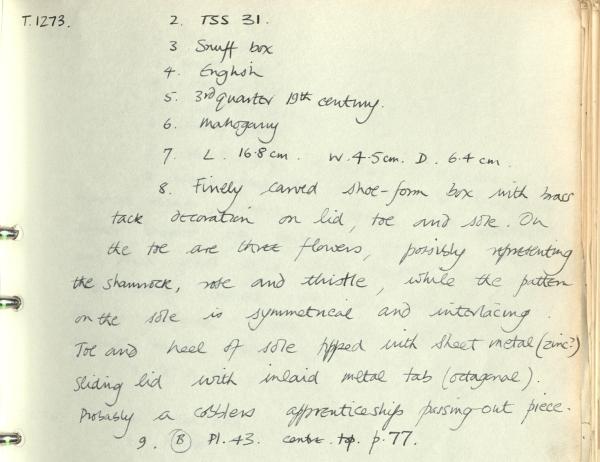 T.1273. 2. TSS 31.
3 Snuff box
4. English
5. 3rd quarter 19th century.
6. Mahogany
7. L. 16.8 cm. W. 4.5cm. D. 6.4 cm.
8. Finely carved shoe-form box with brass
tack decoration on lid, toe and sole. On
the toe are three flowers, possibly representing
the shamrock, rose and thistle, while the pattern
on the sole is symmetrical and interlacing.
Toe and heel of sole tipped with sheet metal (zinc?)
Sliding lid with inlaid metal tab (octagonal).
Probably a cobblers apprenticeship passing-out piece.
9. B Pl. 43. centre top. p.77.